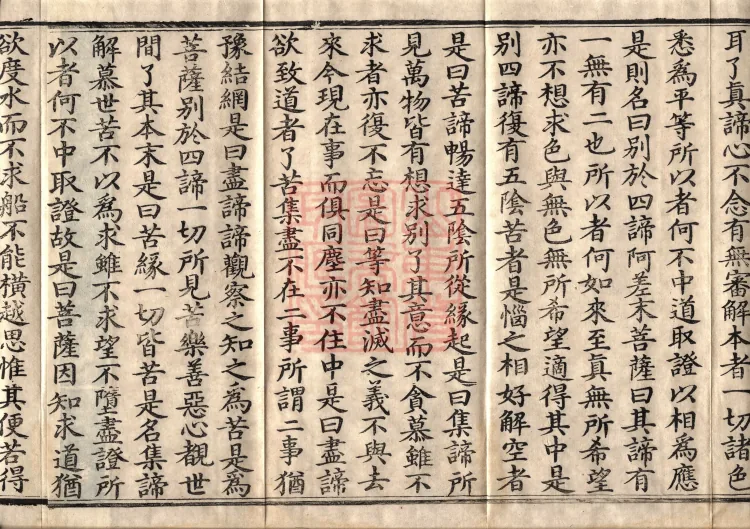 耳了真諦心不念有無審解本者一切諸色
悉為平等所以者何不中道取證以相為應
是則名曰別於四諦阿差末菩薩曰其諦有
一無有二也所以者何如來至真無所希望
亦不想求色與無色無所希望適得其中是
別四諦復有五陰苦者是惱之相好解空者
是曰苦諦暢達五陰所從緣起是曰集諦所
見萬物皆有想求別了其意而不貪慕雖不
求者亦復不忘是曰等知盡滅之義不與去
來今現在事而俱同塵亦不住中是曰盡諦
欲致道者了苦集盡不在二事所謂二事猶
豫結網是曰盡諦諦觀察之知之為苦是為
菩薩別於四諦一切所見苦樂善惡心覩世
間了其本末是曰苦緣一切皆苦是名集諦
解慕世苦不以為求雖不求望不墮盡證所
以者何不中取證故是曰菩薩因知求道猶
欲度水而不求船不能橫越思惟其便若得